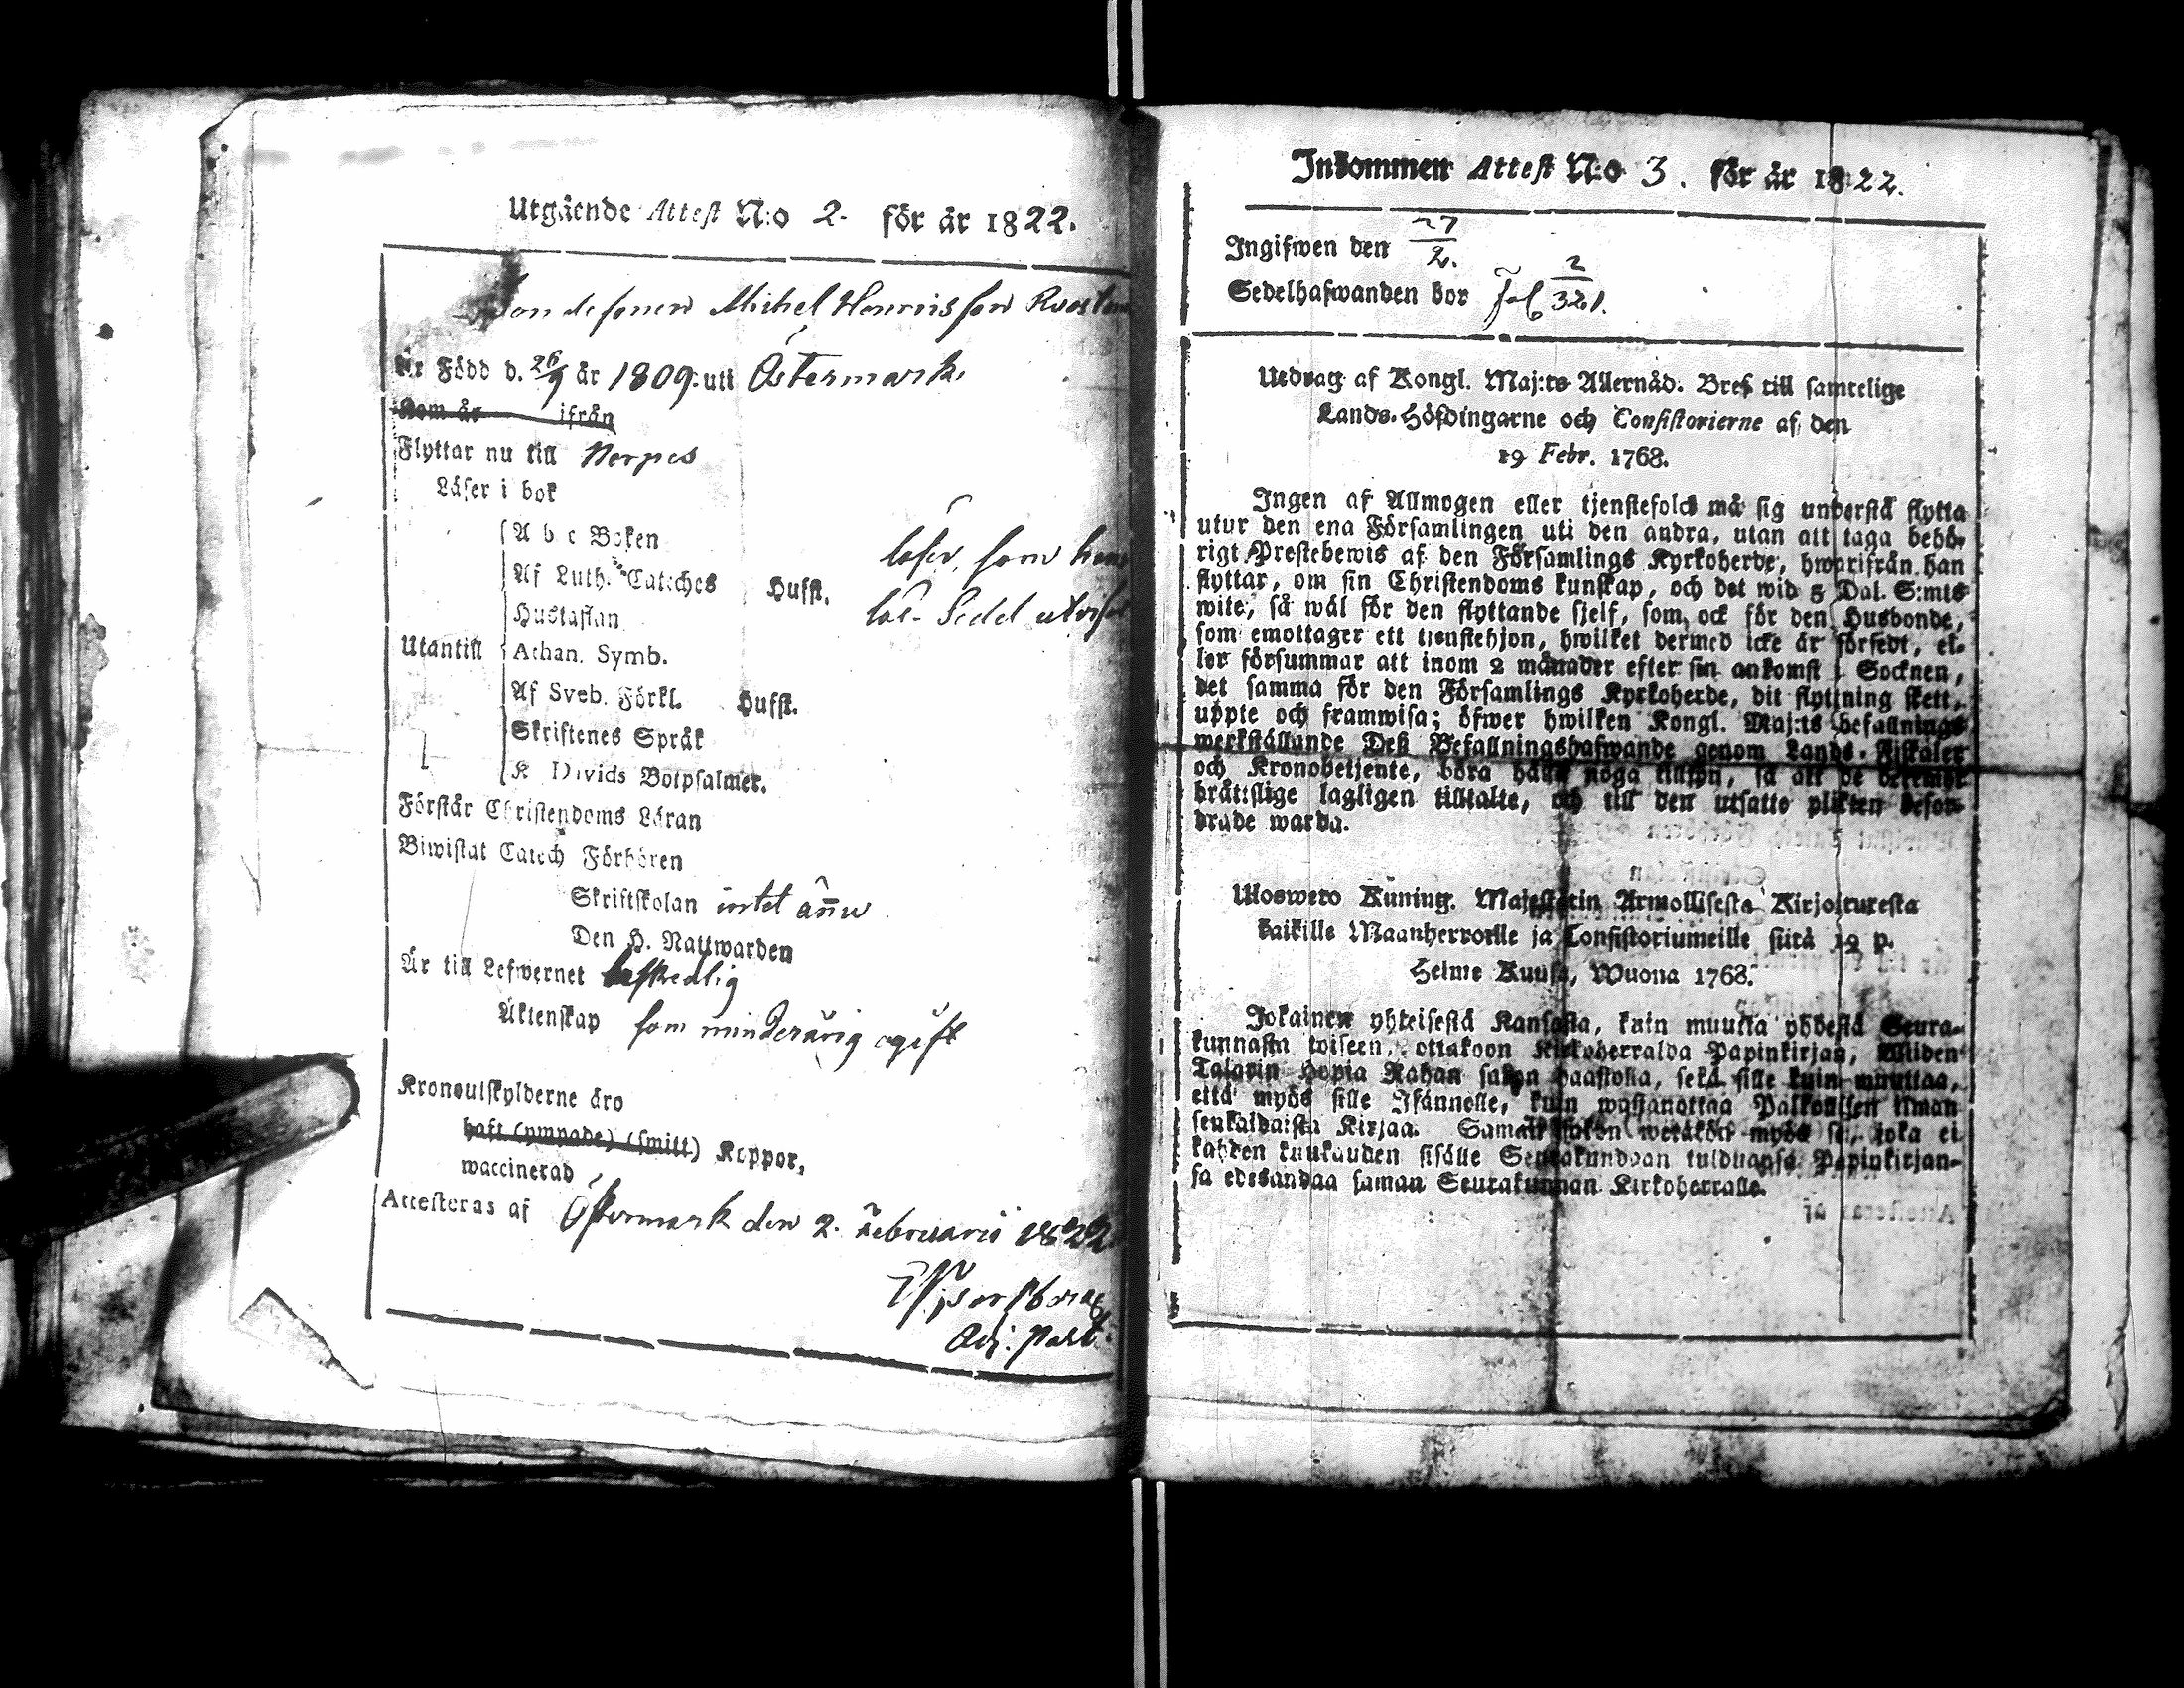 Utgående Attest N:o 2. för år 1822.
Bondesonen Michel Henricsson
Är Född d. 26/9 år 1809. uti Östermark,
Kom år ifrån
Flyttar nu till Nerpes
Läser i bok
A b c Boken
läser, som hans
Af Luth. Cateches Hufst.
Hustaflan
Läs- Sedel utvisar
Utantill Athan. Symb.
Af Sveb. Förkl. Hufst.
Skriftenes Språk
K Davids Botpsalmer.
Förstår Christendoms Läran
Biwistat Catech Förhören
Skriftskolan intet ännu
Den H. Nattwarden
Är till Lefwernet beskedlig
Äktenskap som minderårig ogift
Kronoutskylderne äro
haft (ympade) (smitt) Koppor,
waccinerad
Attesteras af Östermark den 2. Februarii 1822
Adj. Past.
Inkommen Attest N:o 3. för år 1822.
Ingifwen den 27/2.
Sedelhafwanden bor fol 2/321.
Utdrag af Kongl. Maj:ts Allernåd. Bref till samtelige
Lands-Höfdingarne och Consistorierne af den
19 Febr. 1768.
Ingen af Allmogen eller tjenstefolck må sig understå flytta
utur den ena Församlingen uti den andra, utan att taga behö-
rigt Prestebewis af den Församlings Kyrkoherde, hwarifrån han
flyttar, om sin Christendoms kunskap, och det wid 5 Dal. S:mts
wite, så wäl för den flyttande sjelf, som ock för den Husbonde,
som emottager ett tjenstehjon, hwilket dermed icke är försedt, el-
ler försummar att inom 2 månader efter sin ankomst i Socknen,
det samma för den Församlings Kyrkoherde, dit flyttning skett,
uppte och framwisa; öfwer hwilken Kongl. Maj:ts befallnings
werkställande Deß Befallningshafwande genom Lands-Fiskaler
och Kronobetjente, böra hålla noga tillsyn, så att de deremot
bråttslige lagligen tilltalte, och till den utsatte plikten befor-
drade warda.
Uloswero Kuning. Majestetin Armollisesta Kirjoituxesta
kaikille Maanherroille ja Consistoriumeille siitä 19 p.
Helme Kuusa, Wuona 1768.
Jokainen yhteisestä Kansasta, kuin muutta yhdestä Seura-
kunnasta toiseen, ottakoon Kirkoherralda Papinkirjan, Wiiden
Talarin Hopia Rahan sakon haastolla, sekä sille kuin muuttaa,
että myös sille Isännelle, kuin wastanottaa Palkollisen ilman
senkaldaista Kirjaa. Saman sakon wetäkön myös se, joka ei
kahden kuukauden sisälle Seurakundaan tulduansa Papinkirjan-
sa edesandaa saman Seurakunnan Kirkoherralle.